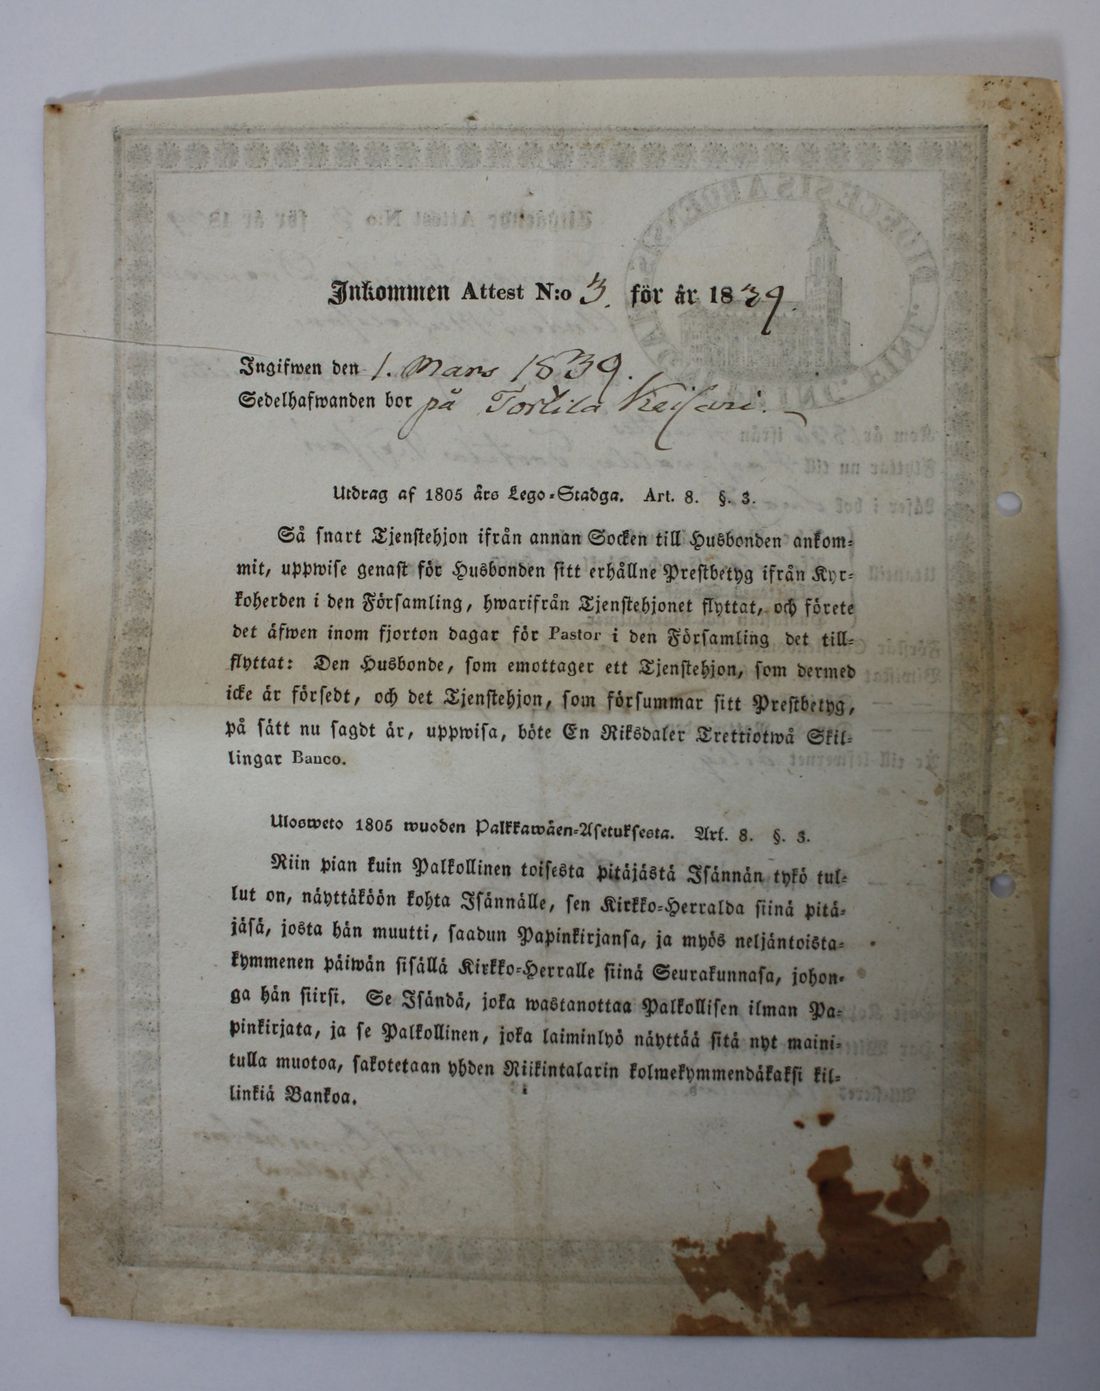 Inkommen Attest N:o 3. för år 1839.
Ingifwen den 1. Mars 1839.
Sedelhafwanden bor på Torlila Keisari.
Utdrag af 1805 års Lego-Stadga. Art. 8. §. 3.
Så snart Tjenstehjon ifrån annan Socken till Husbonden ankom-
mit, uppwise genast för Husbonden sitt erhållne Prestbetyg ifrån Kyr-
koherden i den Församling, hwarifrån Tjenstehjonet flyttat, och förete
det äfwen inom fjorton dagar för Pastor i den Församling det till-
flyttat: Den Husbonde, som emottager ett Tjenstehjon, som dermed
icke är försedt, och det Tjenstehjon, som försummar sitt Prestbetyg,
på sätt nu sagdt är, uppwisa, böte En Riksdaler Trettiotwå Skil-
lingar Banco.
Ulosweto 1805 wuoden Palkkawäen-Asetuksesta. Art. 8. §. 3.
Niin pian kuin Palkollinen toisesta pitäjästä Isännän tykö tul-
lut on, näyttäköön kohta Isännälle, sen Kirkko-Herralda siinä pitä-
jäsä, josta hän muutti, saadun Papinkirjansa, ja myös neljäntoista-
kymmenen päiwän sisällä Kirkko-Herralle siinä Seurakunnasa, johon-
ga hän siirsi. Se Isändä, joka wastanottaa Palkollisen ilman Pa-
pinkirjata, ja se Palkollinen, joka laiminlyö näyttää sitä nyt maini-
tulla muotoa, sakotetaan yhden Riikintalarin kolmekymmendäkaksi kil-
linkiä Bankoa.